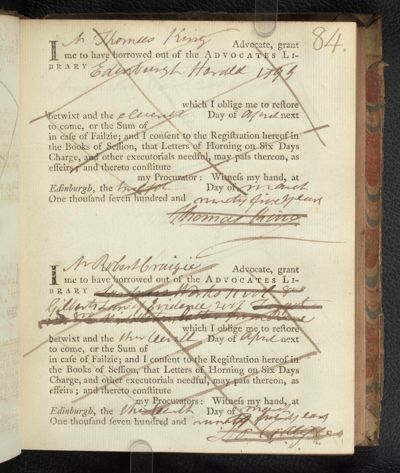 84.
I Mr Thomas King Advocate, grant
me to have borrowed out of the ADVOCATES LI-
BRARY Edinburgh Herald 1795
which I oblige me to restore
betwixt and the eleventh Day of April next
to come, or the Sum of
in case of Failzie; and I consent to the Registration hereof in
the Books of Session, that Letters of Horning on Six Days
Charge, and other executorials needful, may pass thereon, as
effeirs; and thereto constitute
my Procurator: Witness my hand, at
Edinburgh, the twelfth Day of March
One thousand seven hundred and ninety five years
Thomas King
I Mr Robert Craigie Advocate, grant
me to have borrowed out of the ADVOCATES LI-
BRARY Works
Gilberts Law of Evidence
which I oblige me to restore
betwixt and the Day of April next
to come, or the Sum of
in case of Failzie; and I consent to the Registration hereof in
the Books of Session, that Letters of Horning on Six Days
Charge, and other executorials needful, may pass thereon, as
effeirs; and thereto constitute
my Procurators: Witness my hand, at
Edinburgh, the thirteenth Day of March
One thousand seven hundred and ninety five years